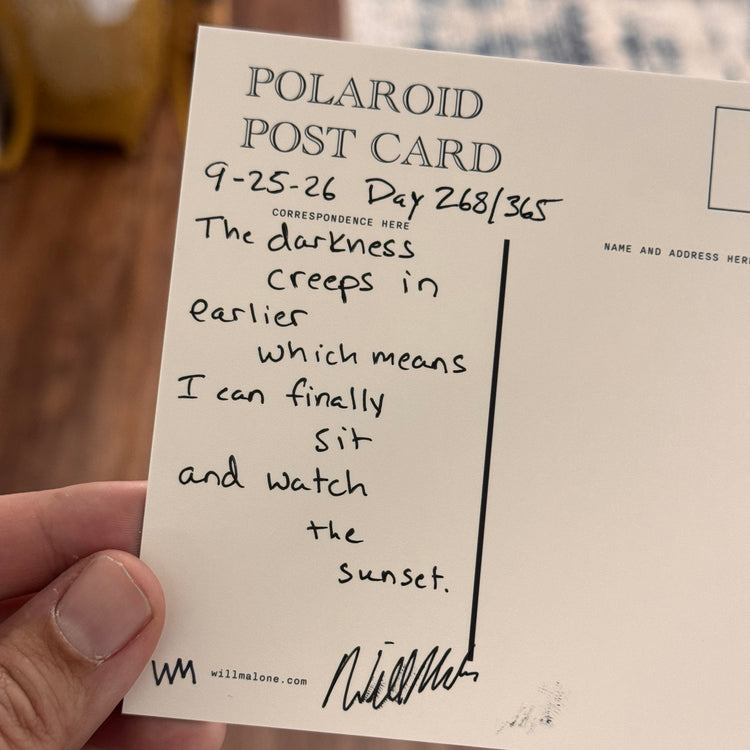 POLAROID
POST CARD
9-25-26 Day 268/365
CORRESPONDENCE HERE
The darkness
creeps in
earlier
which means
I can finally
sit
and watch
the
sunset.
NAME AND ADDRESS HERE
WM willmalone.com
Will Malone